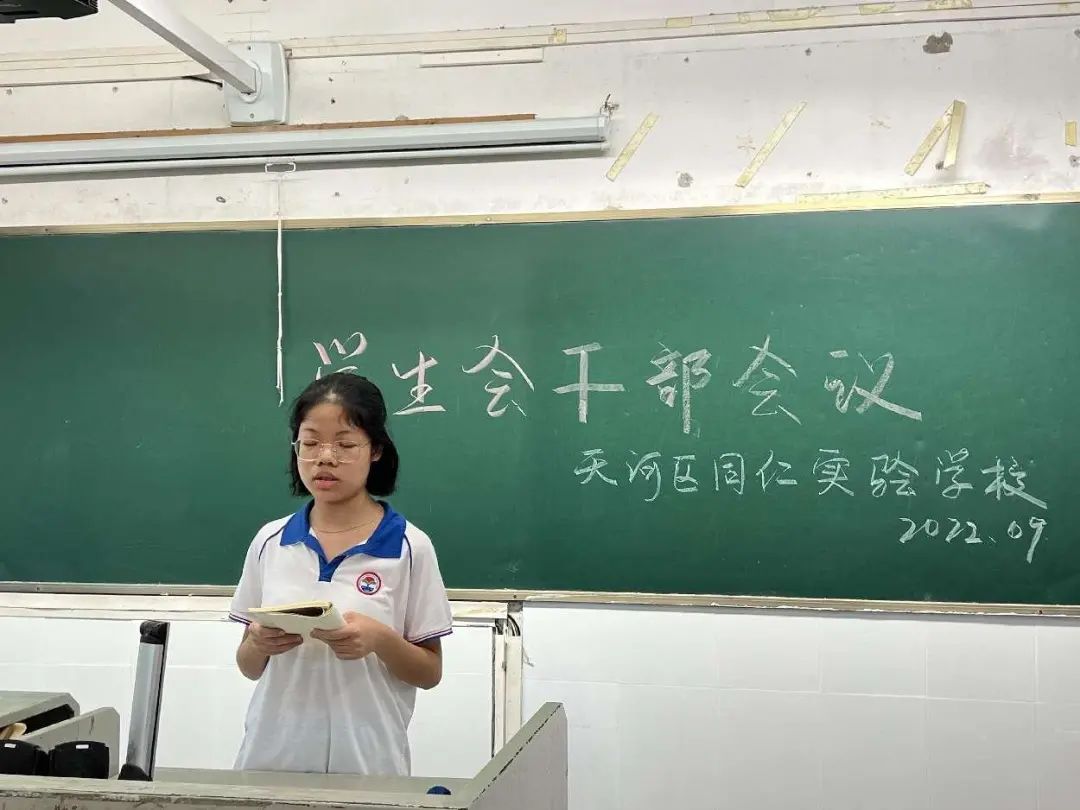 学生会干部会议
天河区同仁实验学校
2022.09